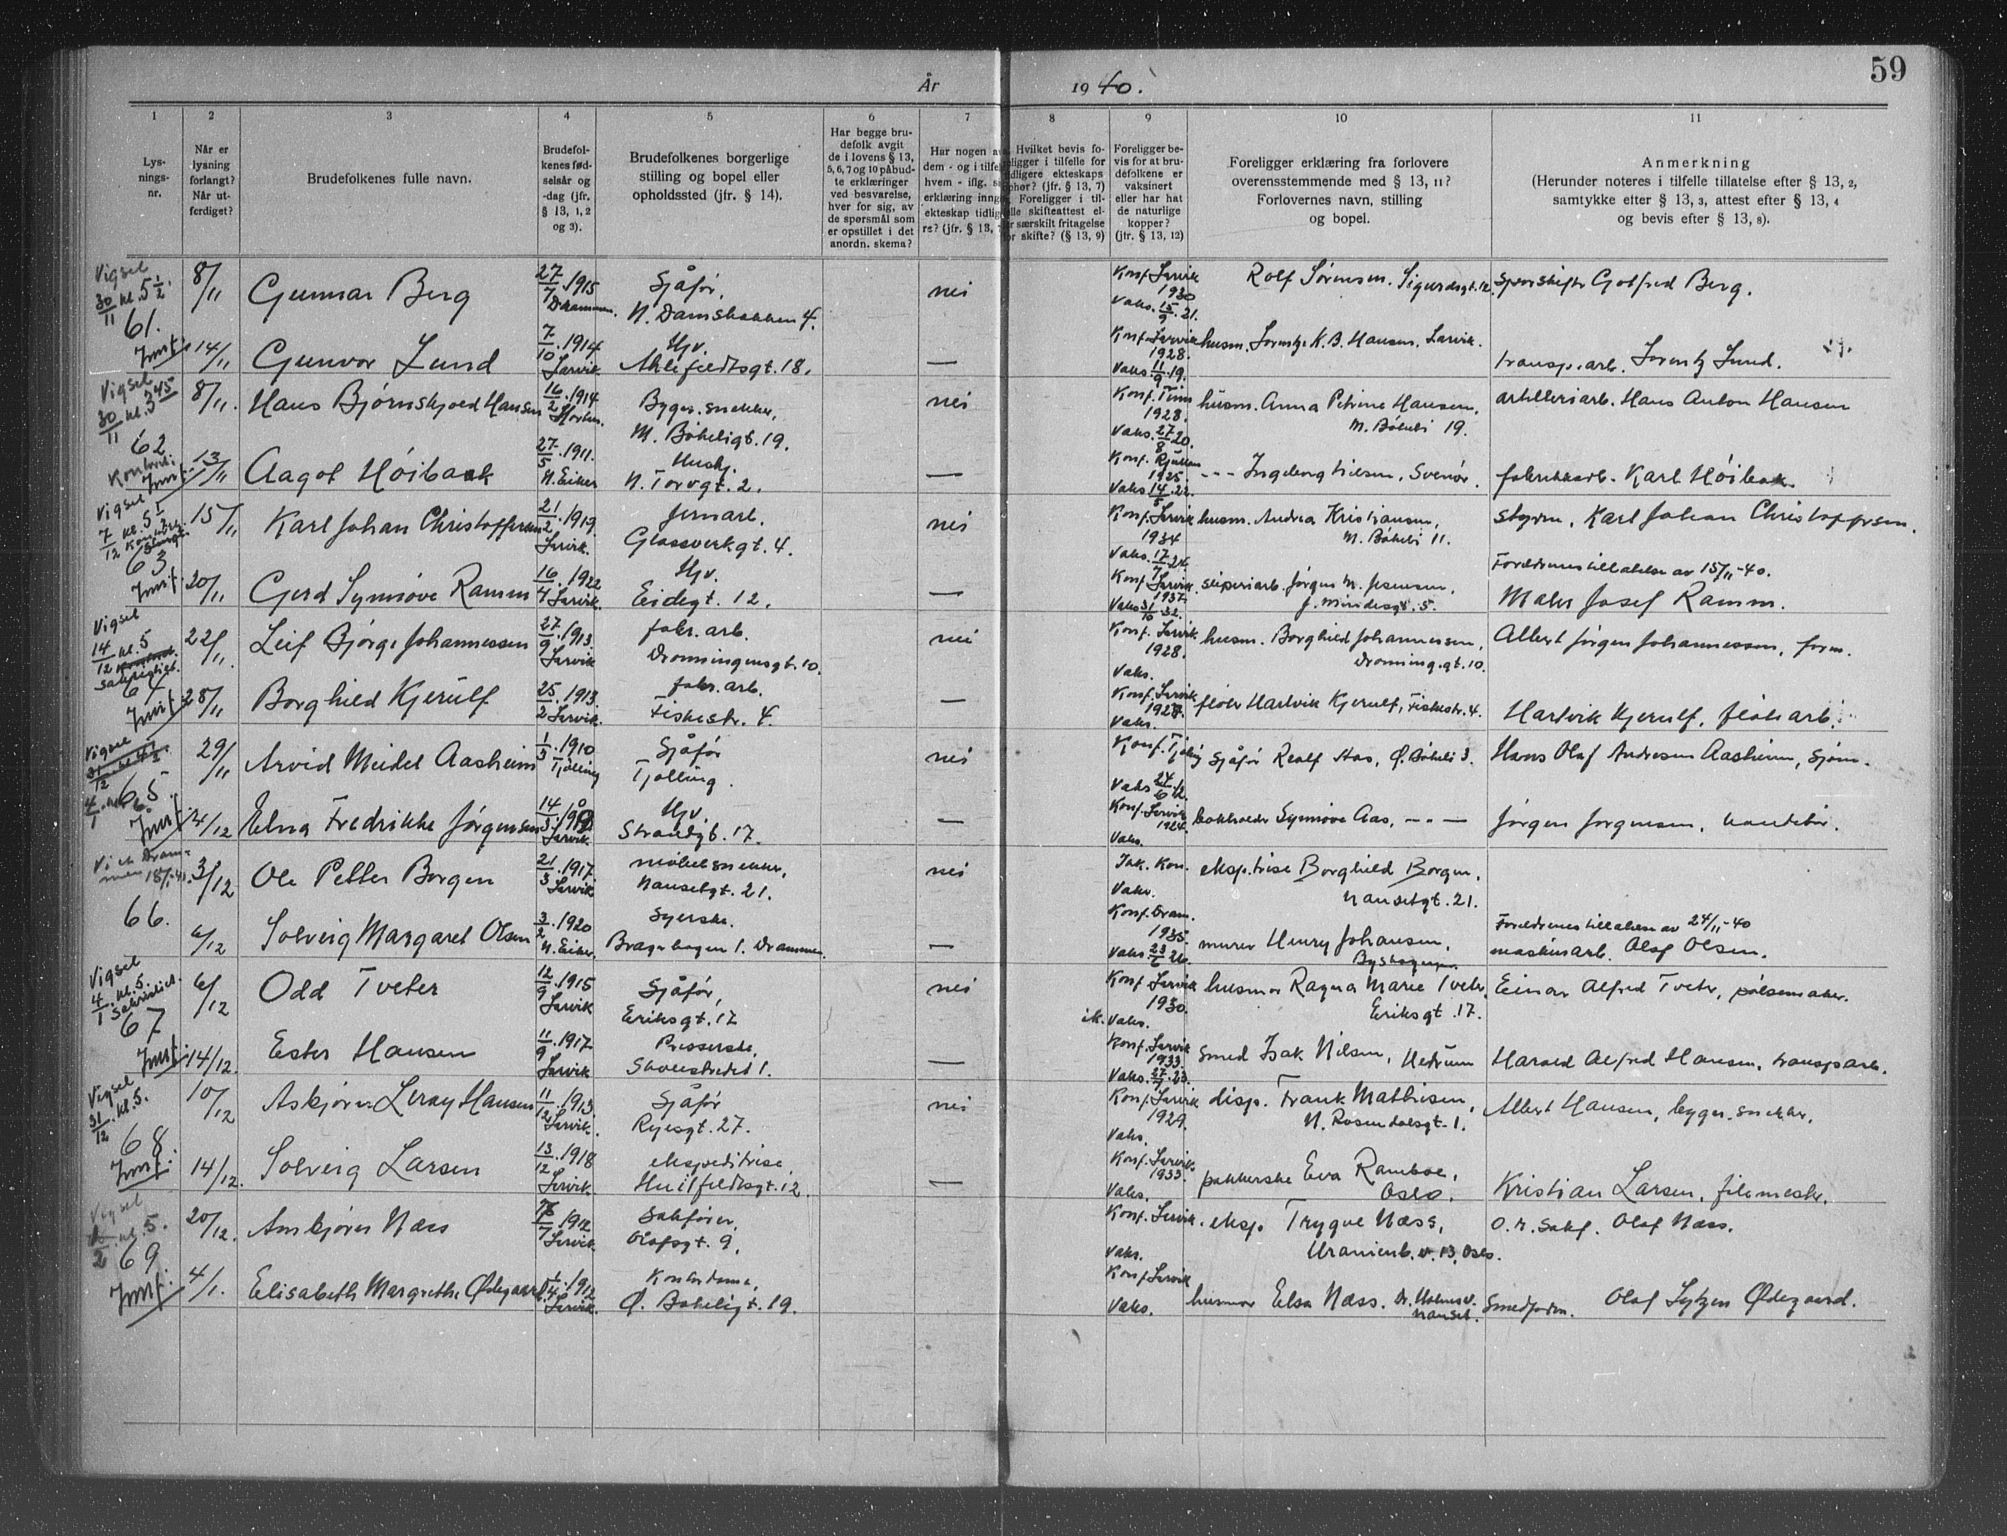 59
År 1940.
1 2 3 4 5 6 7 8 9 10 11
Lysningsnr.
Når er lysning forlangt? Når utferdiget?
Brudefolkenes fulle navn.
Brudefolkenes fødselsår og -dag (jfr. § 13, 1, 2 og 3).
Brudefolkenes borgerlige stilling og bopel eller opholdssted (jfr. § 14).
Har begge brudefolk avgit de i lovens § 13, 5, 6, 7 og 10 påbudte erklæringer ved besvarelse, hver for sig, av de spørsmål som er opstillet i det anordn. skema?
Har nogen av dem - og i tilfelle hvem - iflg.
erklæring inngå
ekteskap tidlig
re? (jfr. § 13,
Hvilket bevis fo-
religger i tilfelle for
tidligere ekteskaps
ophør? (jfr. § 13, 7)
Foreligger i til-
felle skifteattest el-
særskilt fritagelse
for skifte? (§ 13, 9)
Foreligger bevis for at brudefolkene er vaksinert eller har hat de naturlige kopper? (jfr. § 13, 12)
Foreligger erklæring fra forlovere overensstemmende med § 13, 11? Forlovernes navn, stilling og bopel.
Anmerkning (Herunder noteres i tilfelle tillatelse efter § 13, 2, samtykke efter § 13, 3, attest efter § 13, 4 og bevis efter § 13, 8).
Vigsel 30/11 kl. 5 1/2 61. 8/11 Gunnar Berg 27/7 1915 Drammen. Sjåfør, N. Damsbakken 4. nei Konf. Larvik 1930 Vaks. 15/9 21. Rolf Sørensen. Sigurdsgt. 12. Gotfred Berg.
14/11 Gunvor Lund 7/10 1914 Larvik. Hjv. Ahlefeldtsgt. 18. — Konf. Larvik 1928. Vaks. 11/9 19. husm. K. B. Hansen. Larvik. transp.arb. Lorentz Lund.
Vigsel 30/11 kl. 3 45 62 8/11. Hans Bjørnskjold Hansen 16/2 1914 Horten. Bygn. snekker, M. Bøkeligt. 19. nei Konf. 1928. Vaks. 27/8 20. husm. Anna Petrine Hansen, M. Bøkeli 19. artilleriarb. Hans Anton Hansen
13/11 Aagot Høibakk 27/5 1911. N. Eiker Hush. N. Torvgt. 2. — Konf. Rjukan 1925. Vaks 14/5 22. Ingeborg Nilsen, Svenør. fabrikkarb. Karl Høibakk.
Vigsel 7/12 kl. 5 1/2 63 15/11 Karl Johan Christoffersen 21/2 1919. Larvik. Jernarb. Glassverkgt. 4. nei Konf. Larvik 1934 Vaks. 17/7 24. husm. Andrea Kristiansen, M. Bøkeli 11. styrm. Karl Johan Christoffersen.
20/11 Gerd Synnøve Ramm 16/4 1922 Larvik. Hjv. Eidegt. 12. — Konf. Larvik 1937. Vaks 31/10 32. sliperiarb. Jørgen M. Jensen, 5. Foreldrenes tillatelse av 15/11-40. Maler Josef Ramm.
Vigsel 14/12 kl. 5 Sakristiet. 64 22/11. Leif Bjørge Johannessen 27/9 1913. Larvik fabr. arb. Dronningensgt. 10. nei Konf. Larvik 1928. Vaks. husm. Borghild Johannessen, Dronning.gt. 10. Albert Jørgen Johannessen, form.
28/11 Borghild Kjerulf 25/2 1913. Larvik. fabr. arb. Fiskestr. 4. — Konf. Larvik 1927. Vaks. fløter Hartvik Kjerulf, Fiskestr. 4. Hartvik Kjerulf, fløt.arb.
Vigsel 65. 29/11 Arvid Meidel Aasheim 1/3 1910 Tjølling Sjåfør Tjølling. nei Konf. Tjølling Vaks 24/6 12. Sjåfør Realf Aas, Ø. Bøkeli 3. Hans Olaf Andresen Aasheim, sjøm.
4/12 Elna Fredrikke Jørgensen Larvik. Hjv. Strandgt. 17. — Konf. Larvik 1924. Vaks. bokholder Synnøve Aas, - " — Jørgen Jørgensen,
66. 3/12 Ole Petter Borgen 21/3 1917. Larvik møbelsnekker, Nansetgt. 21. nei Vaks. ekspitrise Borghild Borgen, Nansetgt. 21.
6/12 Solveig Margaret Olsen 3/2 1920 N. Eiker. Syerske. Bragerhagen 1. Drammen — Konf. Dram. 1935. Vaks 23/6 26. murer Henry Johansen, Foreldrenes tillatelse av 24/11-40 maskinarb. Olaf Olsen.
Vigsel 4/1 kl. 5. Sakristiet. 67 6/12 Odd Tveter 12/9 1915 Larvik Sjåfør, Eriksgt. 17 nei Konf. Larvik 1930. ik. Vaks. husmor Ragna Marie Tveter, Eriksgt. 17. Einar Alfred Tveter, pølsemaker.
14/12. Ester Hansen 11/9 1917. Larvik Presserske, Skolestredet 1. — Konf. Larvik 1933. Vaks. 27/7 23. smed Isak Nilsen, Hedrum Harald Alfred Hansen, transp.arb.
Vigsel 31/12 kl. 5. 68 10/12 Asbjørn Leroy Hansen 11/12 1913. Larvik. Sjåfør Ryesgt. 27. nei Konf. Larvik 1929. Vaks. disp. Frank Mathisen, N. Rosendalsgt. 1. Albert Hansen, bygn. snekker.
14/12. Solveig Larsen 13/12 1918 Larvik. ekspeditrise, Huitfeldtsgt. 12 — Konf. Larvik 1933. Vaks. pakkerske Eva Ramboe, Oslo. Kristian Larsen, filemester.
Vigsel kl. 5. 69 20/12. Arnbjørn Næss 1912 Larvik. Sakfører, Olafsgt. 9. Konf. Larvik. Vaks. eksp. Trygve Næss, Uranienb. v. 13, Oslo. O. r. sakf. Olaf Næss.
4/1. Elisabeth Margrethe Ødegaard 1912 Larvik. Kontordame, Ø. Bøkeligt. 19. Konf. Larvik Vaks. husmor Elsa Næss. Dr. Holmsv. Nanset. Smedform. Olaf Ødegaard.